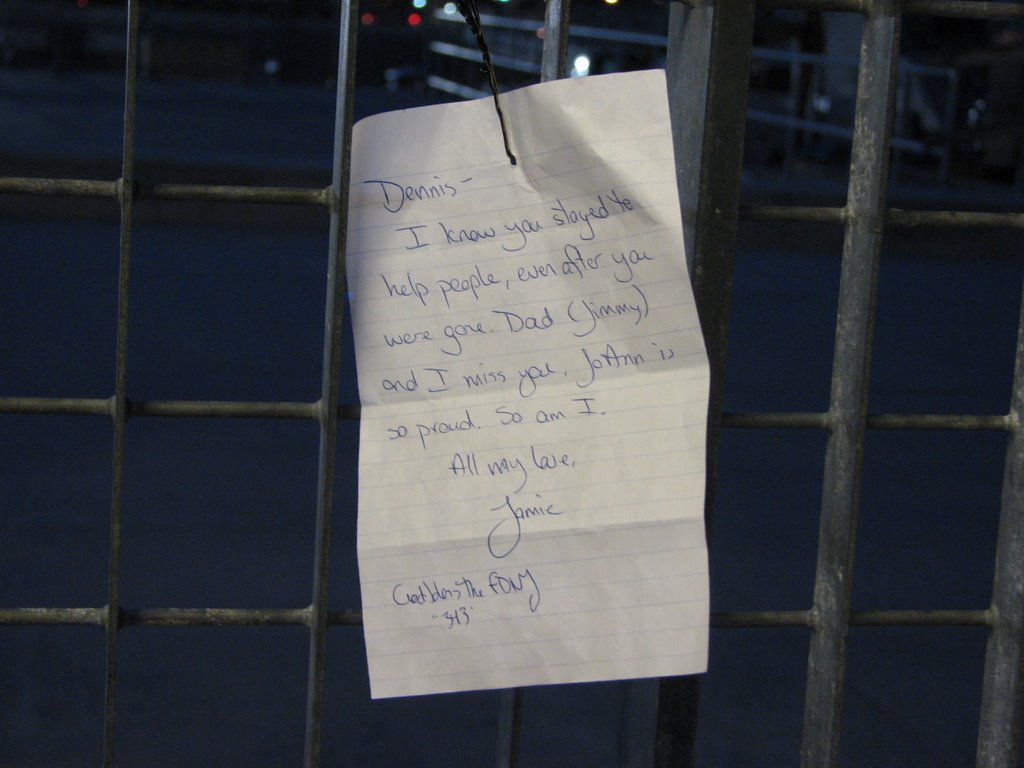 Dennis-
I know you stayed to
help people, even after you
were gone. Dad (Jimmy)
and I miss you. JoAnn is
so proud. So am I.
All my love,
Jamie
God bless the FDNY
"343"